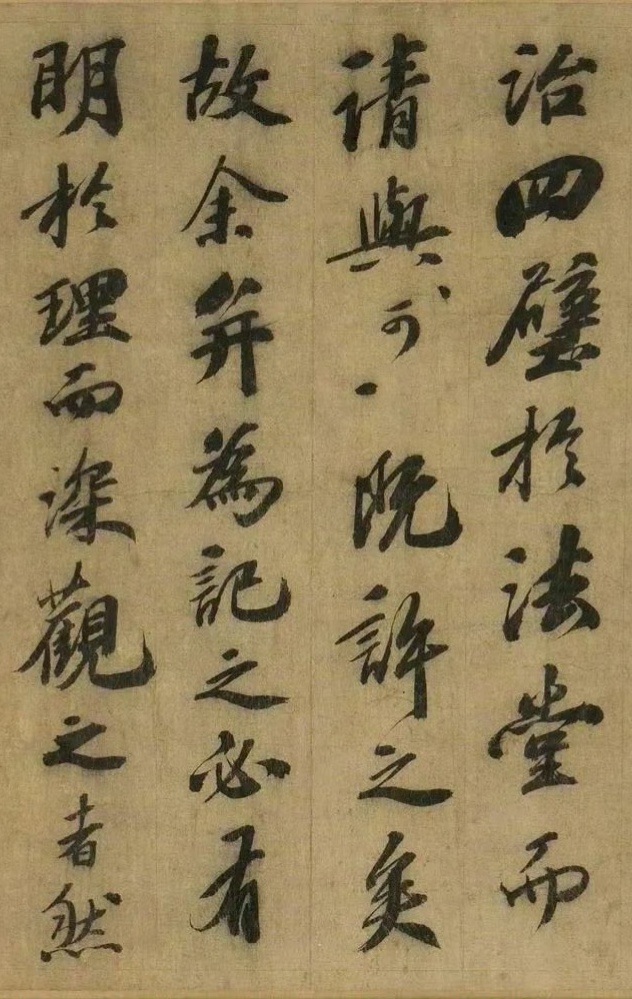 治四壁於法堂而
請與〻可〻既許之矣
故余并為記之必有
明於理而深觀之者然